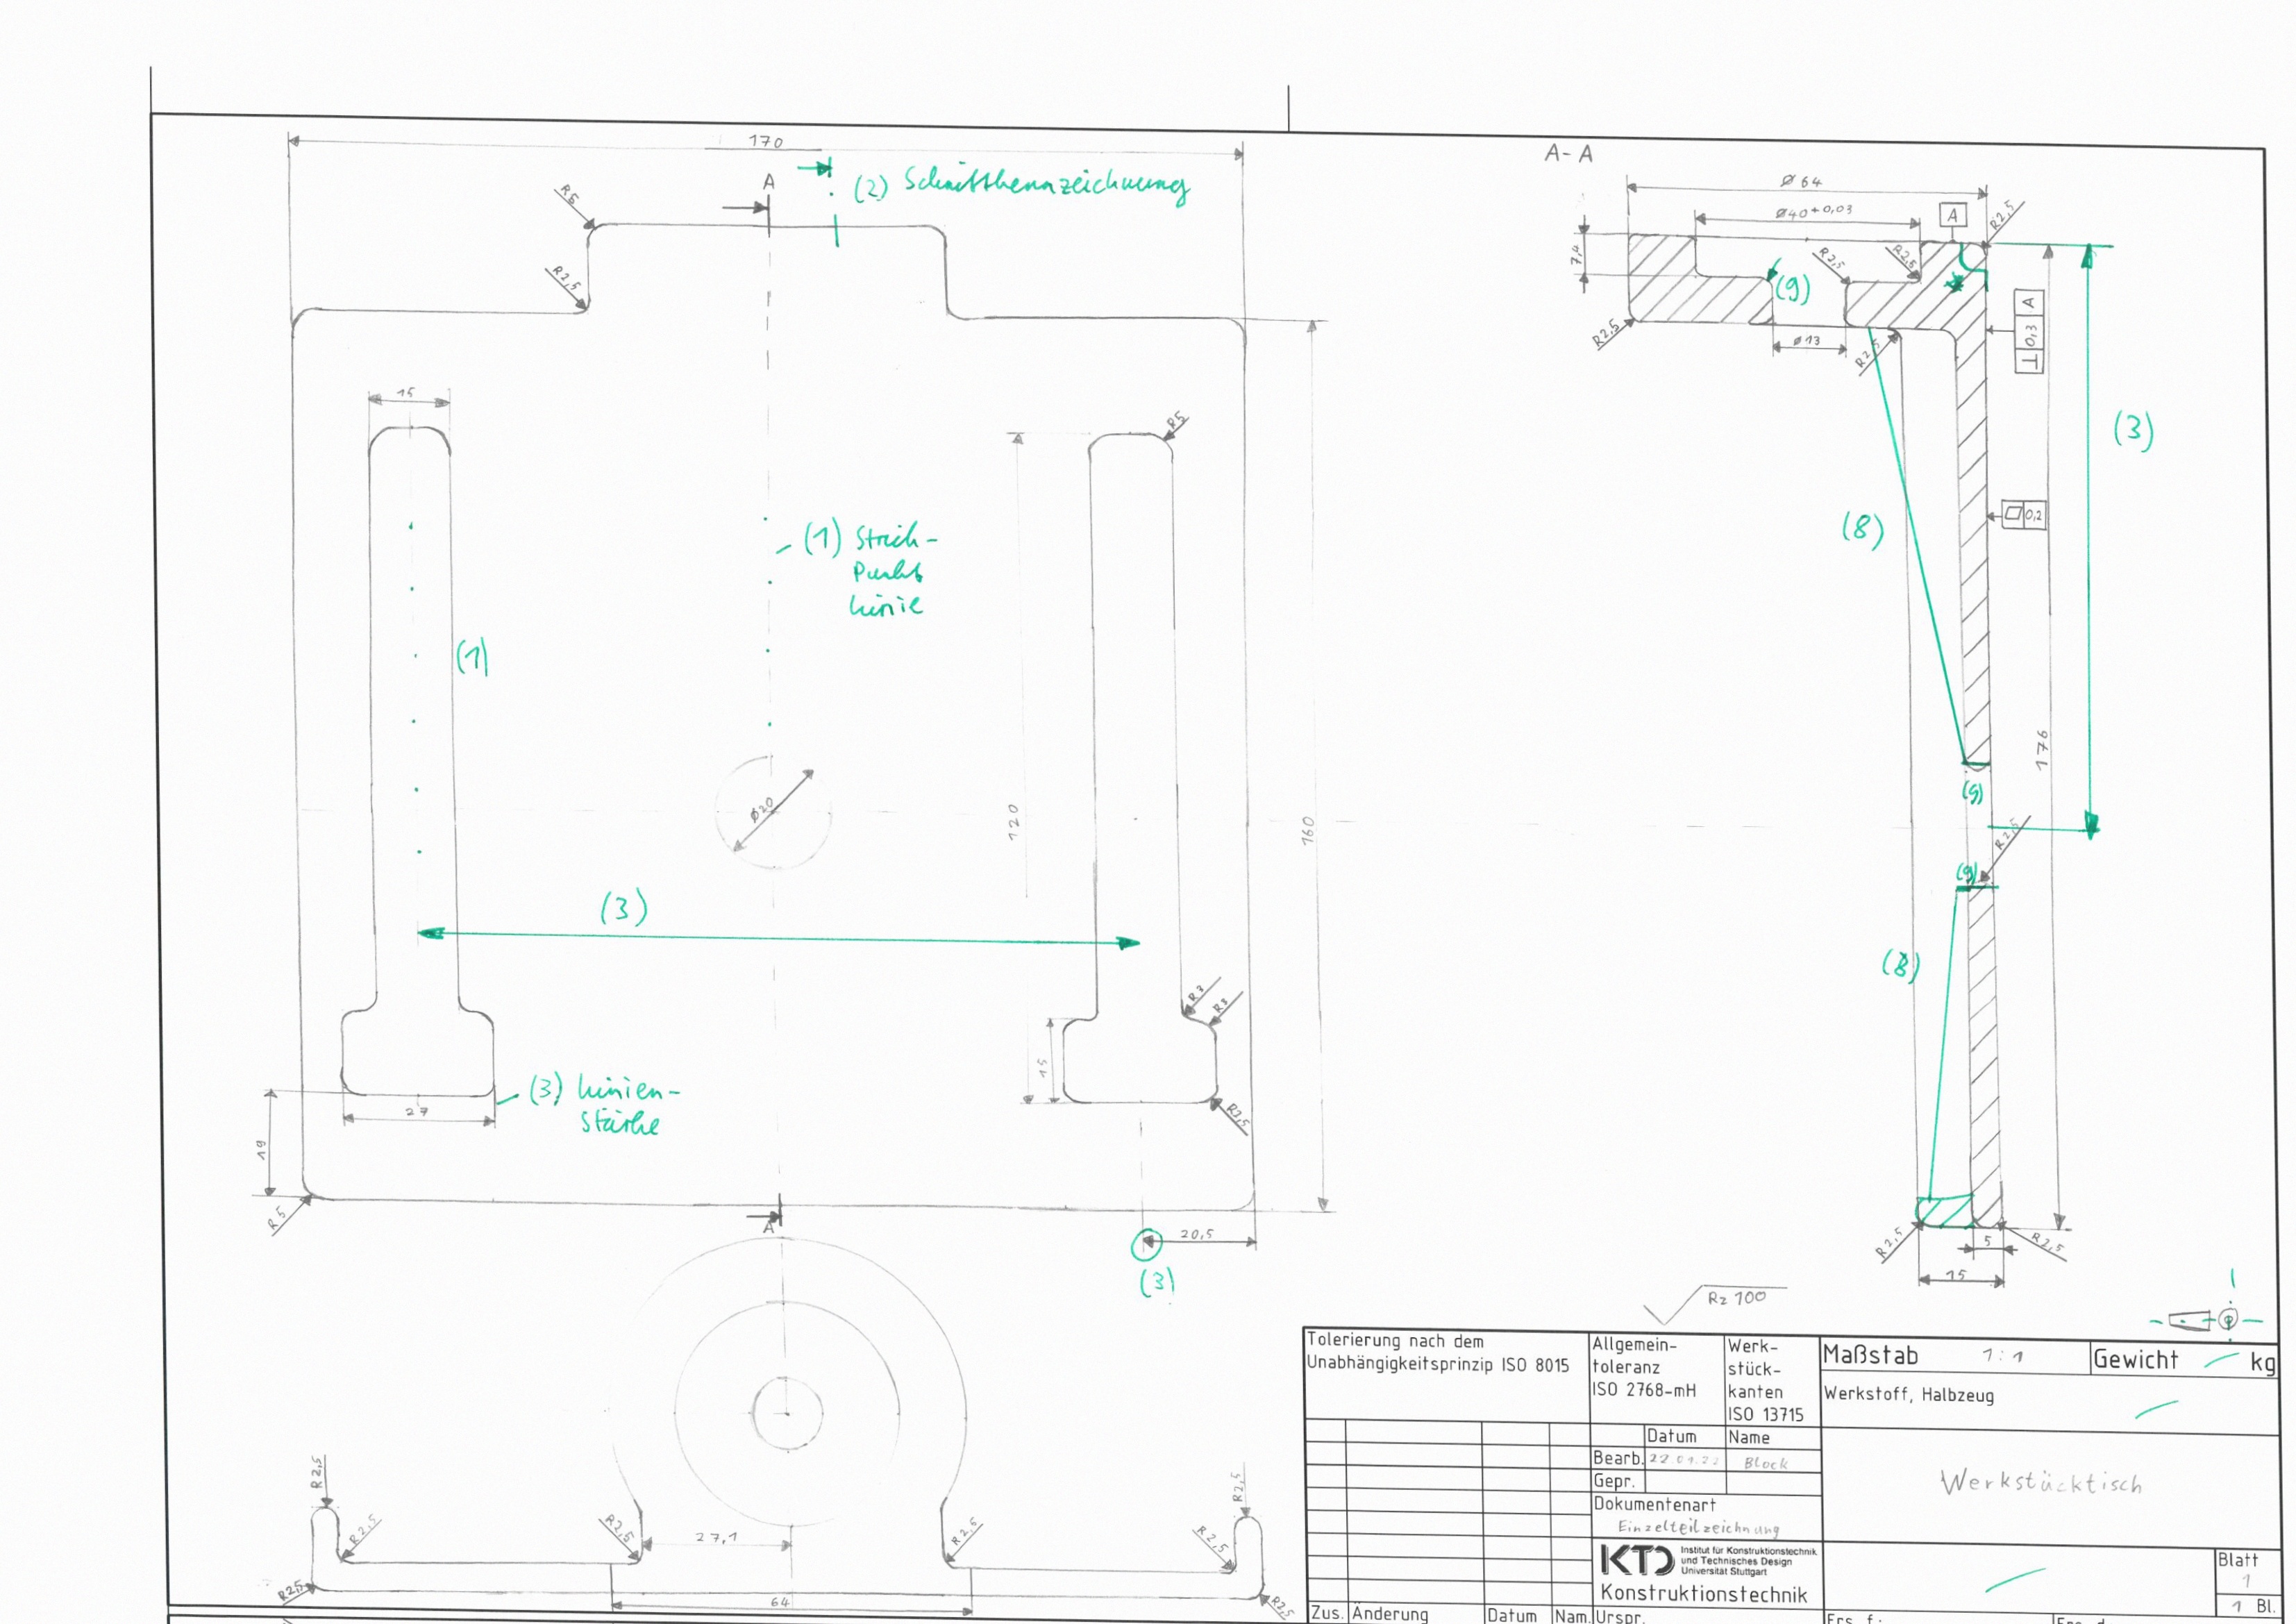 170
A
(2) Schnittkennzeichnung
R5
R2,5
15
R5
(1) Strich-
Punkt
Linie
(1)
120
160
Ø20
(3)
R3
R3
15
R2,5
27
(3) Linien-
stärke
19
R5
A
20,5
(3)
A-A
Ø 64
Ø40 +0,03
A
R2,5
7,4
R2,5
R2,5
(9)
R2,5
Ø13
R2,5
⊥ 0,3 A
(3)
(8)
▱ 0,2
176
(9)
R2,5
(9)
(8)
R2,5
5
R2,5
15
Rz 100
R2,5
R2,5
R2,5
27,1
R2,5
R2,5
R2,5
R2,5
64
R2,5
Tolerierung nach dem
Unabhängigkeitsprinzip ISO 8015
Allgemein-
toleranz
ISO 2768-mH
Werk-
stück-
kanten
ISO 13715
Maßstab 1:1
Gewicht kg
Werkstoff, Halbzeug
Datum Name
Bearb. 22.01.22 Block
Gepr.
Dokumentenart
Einzelteilzeichnung
Werkstücktisch
KTD Institut für Konstruktionstechnik
und Technisches Design
Universität Stuttgart
Konstruktionstechnik
Blatt
1
1 Bl.
Zus. Änderung Datum Nam. Urspr.
Ers. f.: